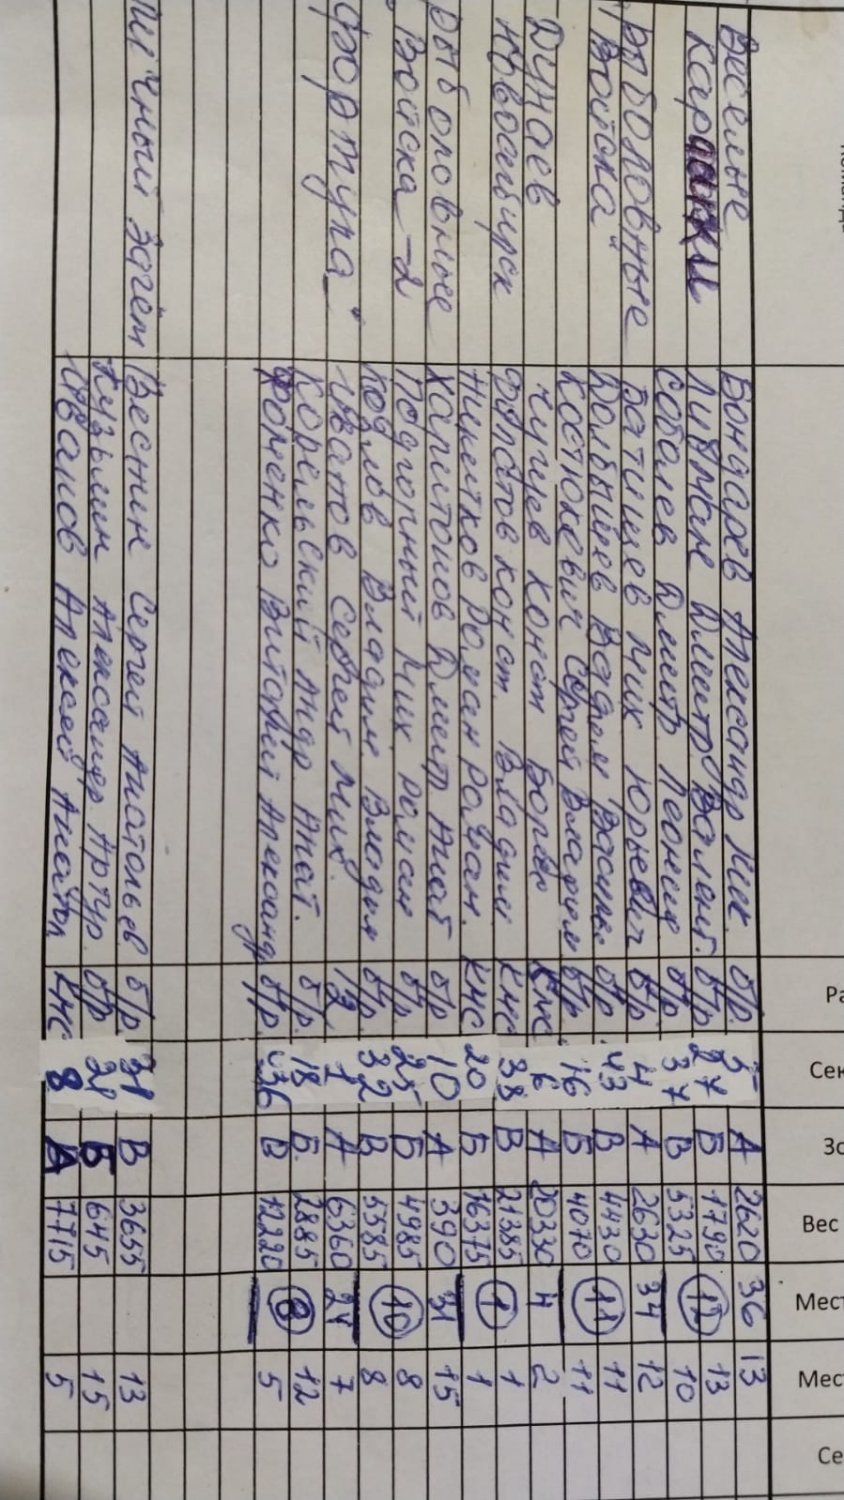 Ра Сек Зо Вес Мест Мест Се
Веселые Бондарев Александр Ник. б/р. 5 А 2620 36 13
Караники Лифман Дмитр. Валент. б/р 27 Б 1790 12 13
Соболев Дмитр Леонид б/р 37 В 5325 10
"Рыболовные Батищев Мих Юрьевич б/р 4 А 2630 34 12
Войска" Вадим Васил. б/р 43 В 4430 11
Костюкевич Сергей Владим б/р 16 Б 4070 11 11
Дунаев Чугуев Конст Борис КМС 6 А 20330 4 2
Новосибирск Филатов Конст. Владим КМС 38 В 21385 1
Никитков Роман Роман. КМС 20 Б 16375 1 1
Рыболовные Харитонов Дмитр Анат б/р 10 А 390 31 15
Войска-2 Подгорный Мих. Роман б/р 25 Б 4985 8
Козлов Владим. Владим б/р. 32 В 5585 10 8
"Фортуна" Иванов Сергей Мих. 12 1 А 6360 27 7
Корельский Андр Анат. б/р. 18 Б. 2885 12
Фоменко Виталий Александ. б/р. 36 В 12220 8 5
Личный зачёт Веснин Сергей Анатольев. б/р 31 В 3655 13
Кузьмин Александр Артур. б/р 21 Б 645 15
Иванов Алексей Анатол КМС 8 А 7715 5